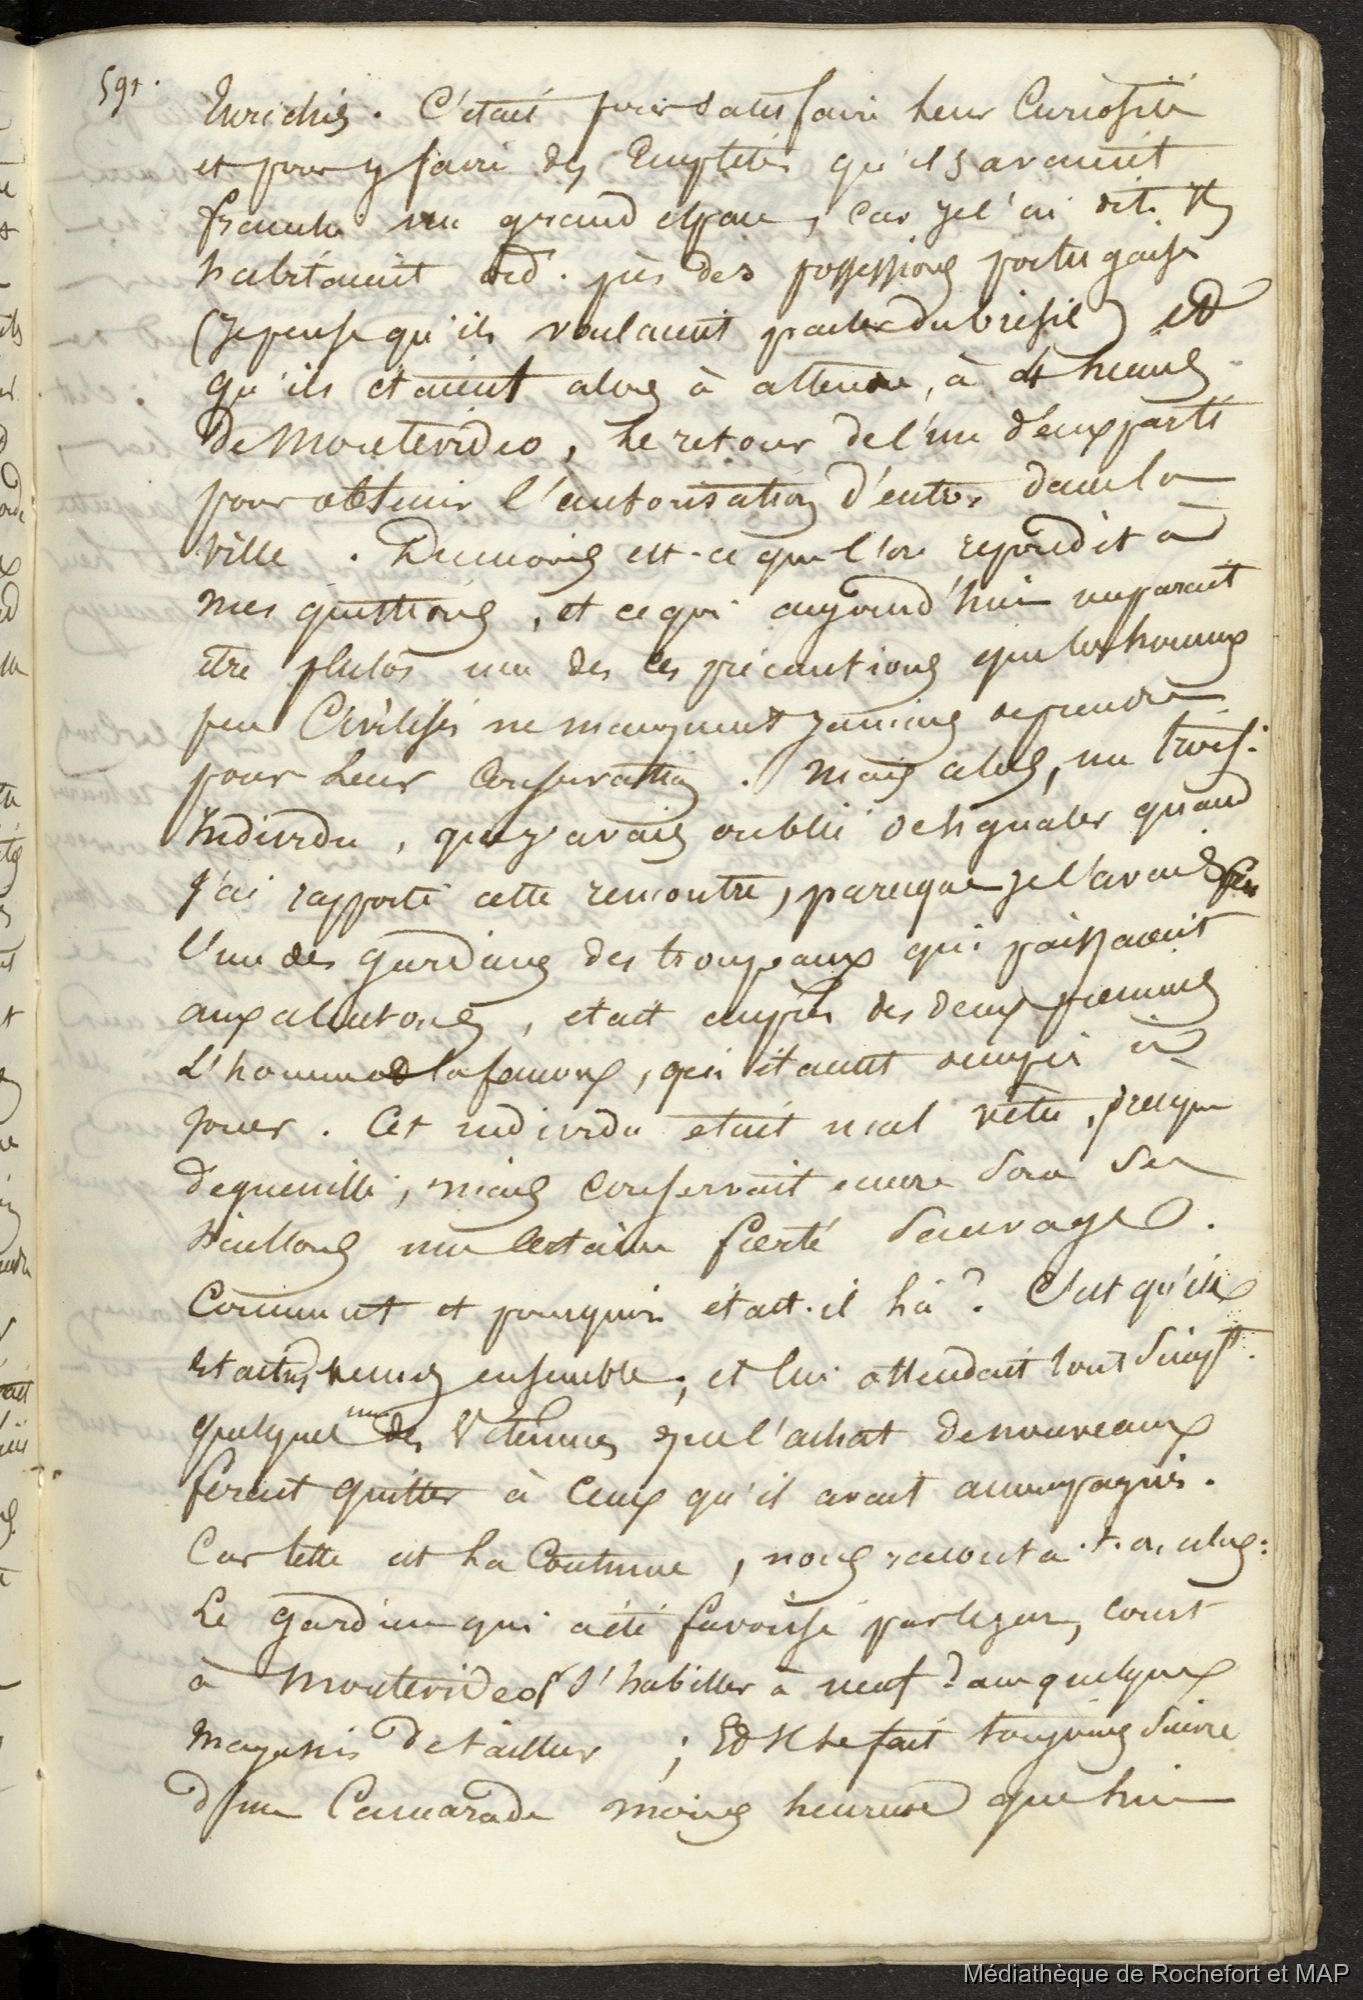 591.
Enrichis. C'était pour satisfaire leur Curiosité
et pour y faire des Emplettes qu'ils avaient
franchi un grand espace, car je l'ai dit, Ils
habitaient ord. près des possessions portugaises
(Je pense qu'ils voulaient parler du brésil) et
qu'ils étaient alors à attendre, à 4 heures
De Montevideo, le retour de l'un d'eux parti
pour obtenir l'autorisation d'entrer dans la
ville. Dumoins est-ce que l'on répondit à
mes questions, et ce qui aujourd'hui me parait
être plutôt une des ces précautions que les hommes
peu Civilisés ne manquent jamais de prendre
pour leur Conservation. Mais alors, un trois.
Individu, que j'avais oublié de signaler quand
J'ai rapporté cette rencontre, parceque je l'avais
l'un des gardiens des troupeaux qui paissaient
aux alentours, était auprès des deux premiers
L'homme et la femme, qui étaient occupés à
jouer. Cet individu était mal vêtu, presque
déguenillé, mais conservait encore sous ses
haillons une certaine fierté sauvage.
Comment et pourquoi était-il là? C'est qu'ils
étaient venus ensemble, et lui attendait tout simpt.
quelques uns des vêtemens que l'achat de nouveaux
ferait quitter à Ceux qu'il avait accompagnés.
Car telle est la Coutume, nous raconta-t-on alors:
Le gardien qui a été favorisé par le jeu, court
à Montevideo s'habiller à neuf dans quelques
Magasins de tailleur ; Et Il se fait toujours suivre
d'un Camarade moins heureux que lui
Médiathèque de Rochefort et MAP